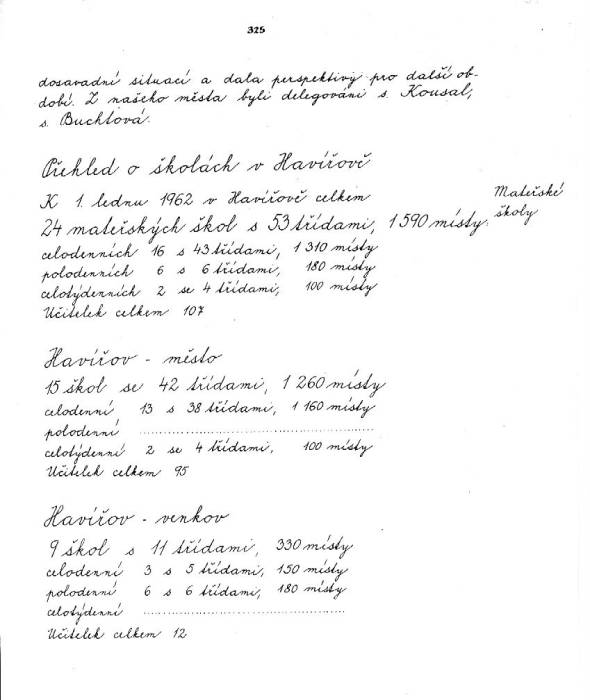 325
dosavadní situací a dala perspektivy pro další ob-
dobí. Z našeho města byli delegováni s. Kousal,
s. Buchtová.
Přehled o školách v Havířově
K 1. lednu 1962 v Havířově celkem
Mateřské
školy
24 mateřských škol s 53 třídami, 1 590 místy.
celodenních 16 s 43 třídami, 1 310 místy
polodenních 6 s 6 třídami, 180 místy
celotýdenních 2 se 4 třídami, 100 místy
Učitelek celkem 107
Havířov - město
15 škol se 42 třídami, 1 260 místy
celodenní 13 s 38 třídami, 1 160 místy
polodenní ........................................
celotýdenní 2 se 4 třídami, 100 místy
Učitelek celkem 95
Havířov - venkov
9 škol s 11 třídami, 330 místy
celodenní 3 s 5 třídami, 150 místy
polodenní 6 s 6 třídami, 180 místy
celotýdenní ........................................
Učitelek celkem 12